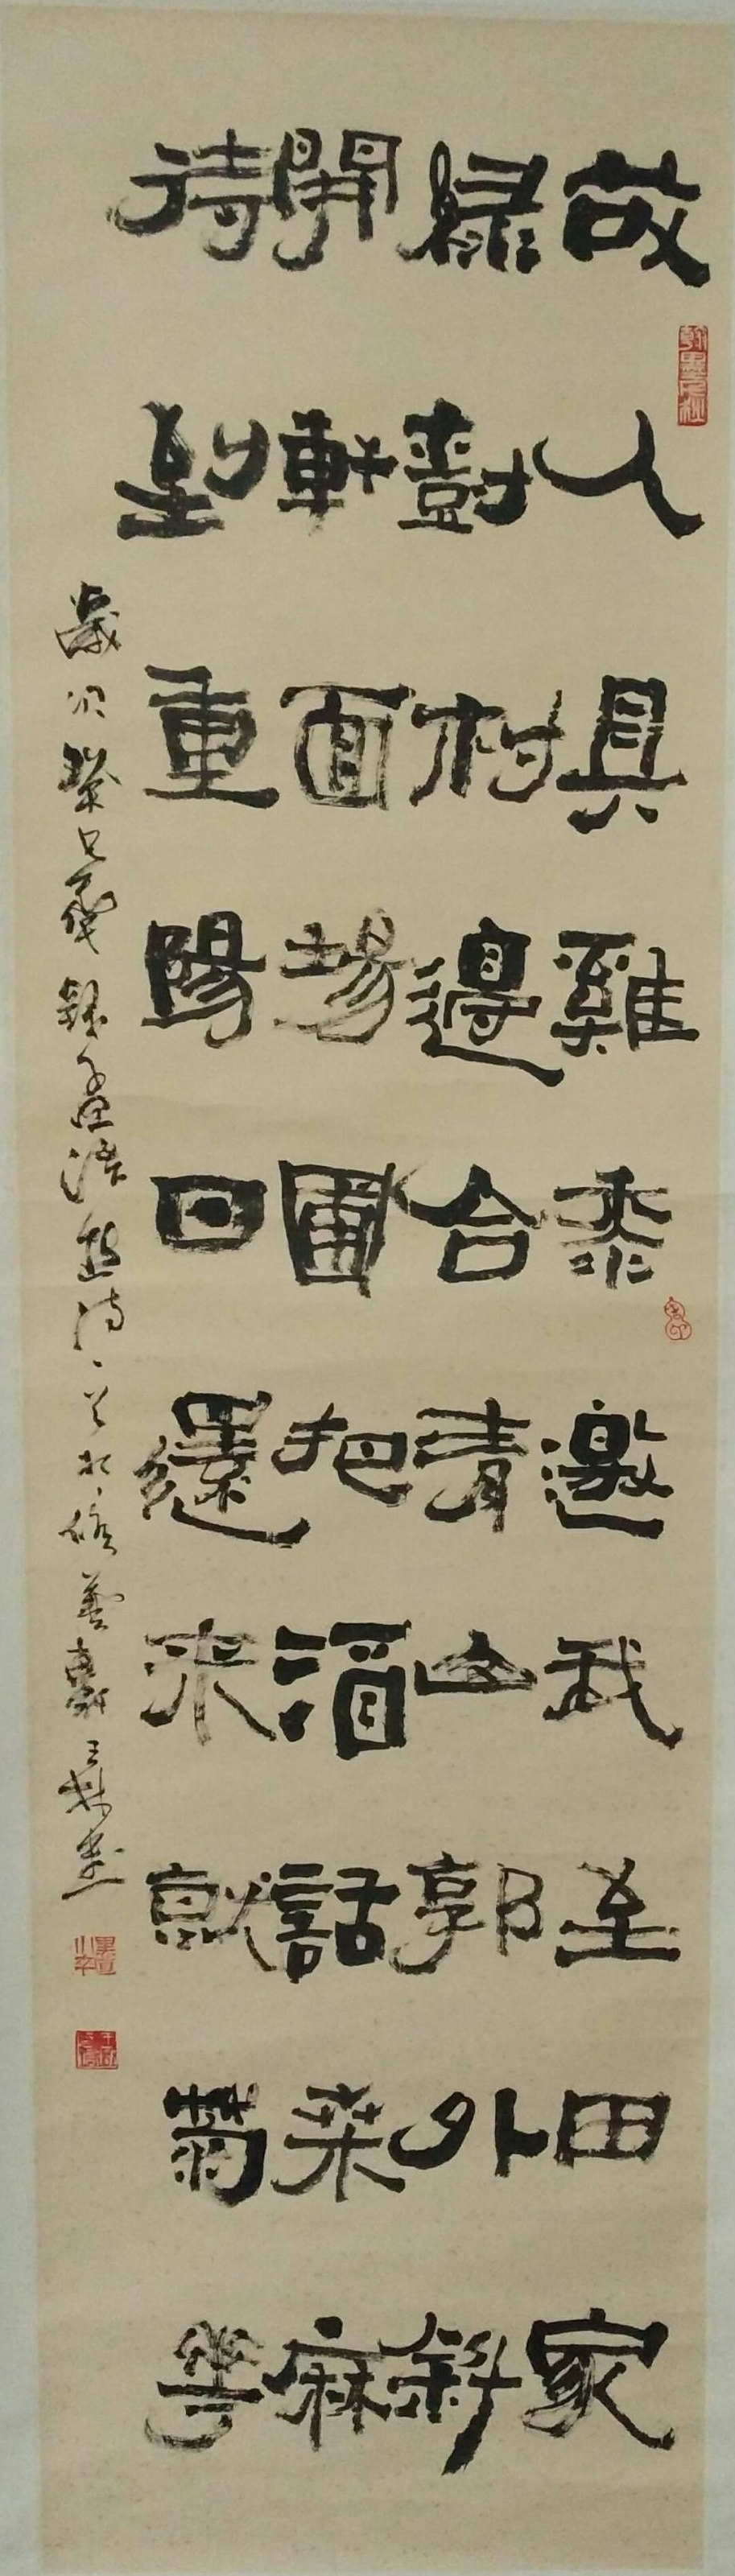 故人具雞黍邀我至田家
綠樹村邊合青山郭外斜
開軒面場圃把酒話桑麻
待到重陽日還來就菊花
歲次癸巳錄孟浩然詩一首於藝齋王書